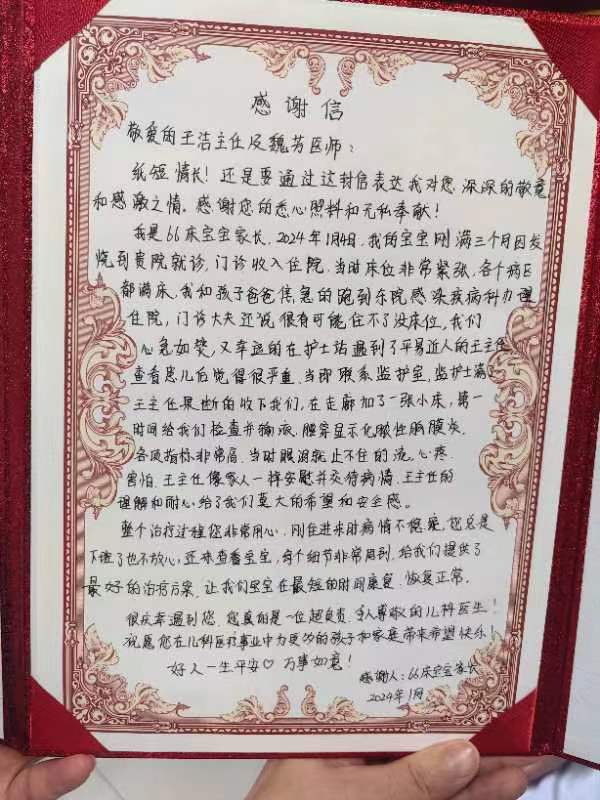 感谢信
敬爱的王洁主任及魏芳医师：
纸短情长！还是要通过这封信表达我对您深深的敬意
和感激之情。感谢您的悉心照料和无私奉献！
我是66床宝宝家长，2024年1月4日，我的宝宝刚满三个月因发
烧到贵院就诊，门诊收入住院，当时床位非常紧张，各个病区
都满床，我和孩子爸爸焦急的跑到东院感染疾病科办理
住院，门诊大夫还说很有可能住不了没床位，我们
心急如焚，又幸运的在护士站遇到了平易近人的王主任
查看患儿后觉得很严重，当即联系监护室，监护士满
王主任果断的收下我们，在走廊加了一张小床，第一
时间给我们检查并输液，腰穿显示化脓性脑膜炎，
各项指标非常高，当时眼泪就止不住的流，心疼
害怕，王主任像家人一样安慰并交待病情，王主任的
理解和耐心给了我们莫大的希望和安全感。
整个治疗过程您非常用心，刚住进来时病情不稳定，您总是
下班了也不放心，还来查看宝宝，每个细节非常周到，给我们提供了
最好的治疗方案，让我们宝宝在最短的时间康复，恢复正常。
很庆幸遇到您，您真的是一位超负责，令人尊敬的儿科医生！
祝愿您在儿科医疗事业中为更多的孩子和家庭带来希望快乐！
好人一生平安♡万事如意！
感谢人：66床宝宝家长
2024年1月